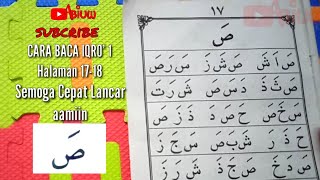 Abiuw
SUBSCRIBE
CARA BACA IQRO' 1
Halaman 17-18
Semoga Cepat Lancar
aamiin
صَ
١٧
صَ
صَ اَ شَ صَ شَ زَ سَ رَ صَ
صَ ثَ ذَ دَ سَ صَ شَ رَ تَ
سَ خَ صَ حَ صَ دَ صَ زَ صَ
حَ ذَ رَ شَ بَ صَ سَ جَ زَ
صَ دَ خَ صَ جَ ذَ شَ رَ زَ